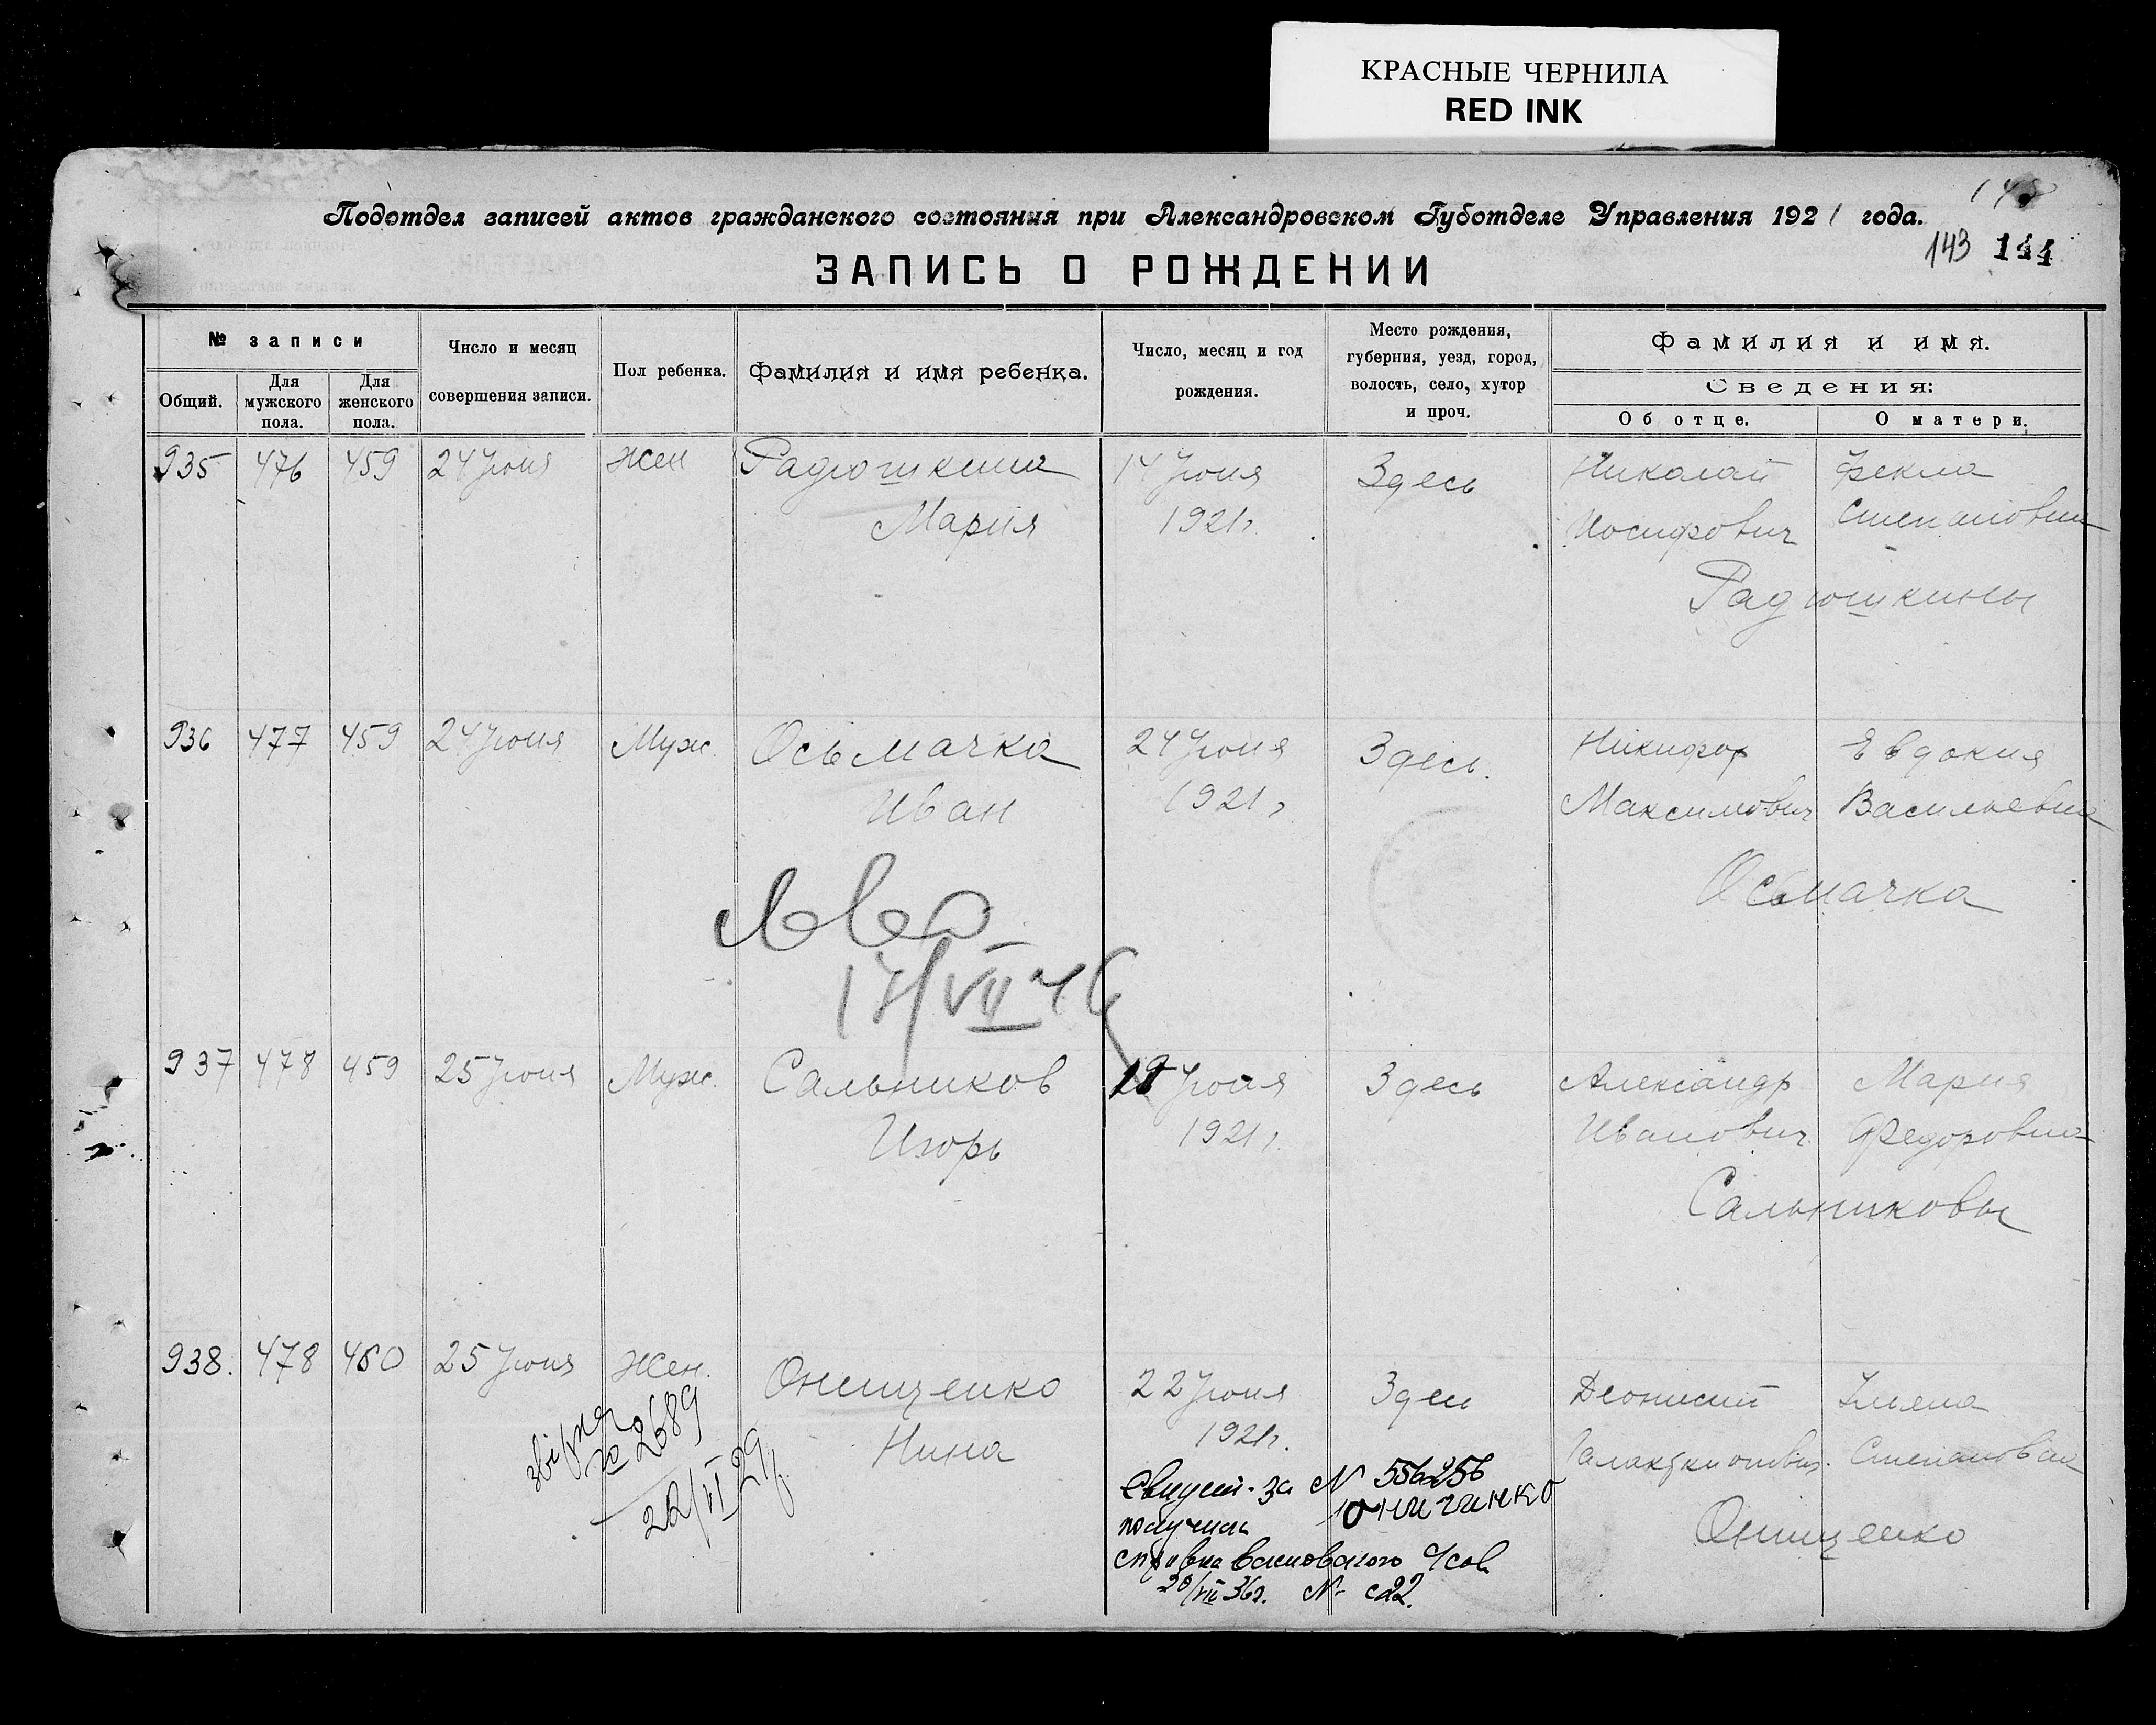 КРАСНЫЕ ЧЕРНИЛА
RED INK
Подотдел записей актов гражданского состояния при Александровском Губотделе Управления 1921 года.
143 144
ЗАПИСЬ О РОЖДЕНИИ
№ записи
Общий.
Для мужского пола.
Для женского пола.
Число и месяц совершения записи.
Пол ребенка.
Фамилия и имя ребенка.
Число, месяц и год рождения.
Место рождения, губерния, уезд, город, волость, село, хутор и проч.
Фамилия и имя.
Сведения:
Об отце.
О матери.
935 476 459 24 Июня Жен Радюшкина 14 Июня Здесь Николай Фекла
Мария 1921г. Иосифович Степановна
Радюшкины
936 477 459 24 Июня Муж. Осьмачка 21 Июня Здесь. Никифор Евдокия
Иван 1921г Максимович Васильевна
Осьмачка
17/VII 46
937 478 459 25 Июня Муж. Сальников Июня Здесь Александр Мария
Игорь 1921г. Иванович Федоровна
Сальниковы
938. 478 460 25 Июня Жен. Онищенко 22 Июня Здесь Деонисий
Нина 1921г. Степановна
Онищенко
№ 2689
22/VI 29
Свидет. за № 556256
получила
20/VII 36г. №